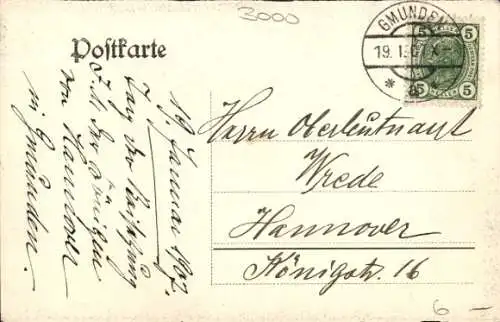 3000
Postkarte
GMUNDEN
19. 1.
5 5
5 5
19. Januar 1907.
Tag der
I. M. der Königin
von Hannover
in Gmunden.
Herrn Oberleutnant
Wrede
Hannover
Königstr. 16
6 –